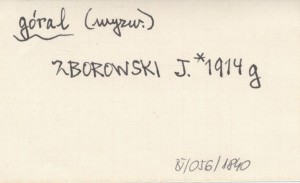 góral (wyzw.)
ZBOROWSKI J. *1914 g
IV/056/1840